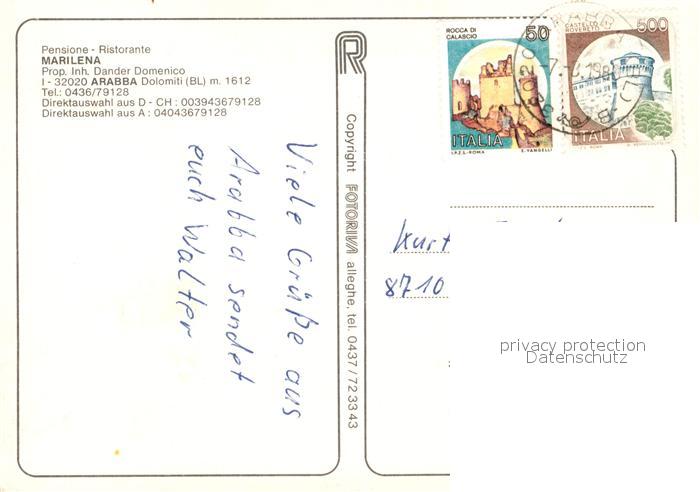 Pensione - Ristorante
MARILENA
Prop. Inh. Dander Domenico
I - 32020 ARABBA Dolomiti (BL) m. 1612
Tel.: 0436/79128
Direktauswahl aus D - CH : 003943679128
Direktauswahl aus A : 04043679128
Viele Grüße aus
Arabba sendet
euch Walter
R
Copyright FOTORIVA alleghe, tel. 0437/723343
ROCCA DI
CALASCIO
50
ITALIA
I.P.Z.S.-ROMA E. VANGELLI
CASTELLO
ROVERETO
500
ITALIA
Kurt
8710
privacy protection
Datenschutz